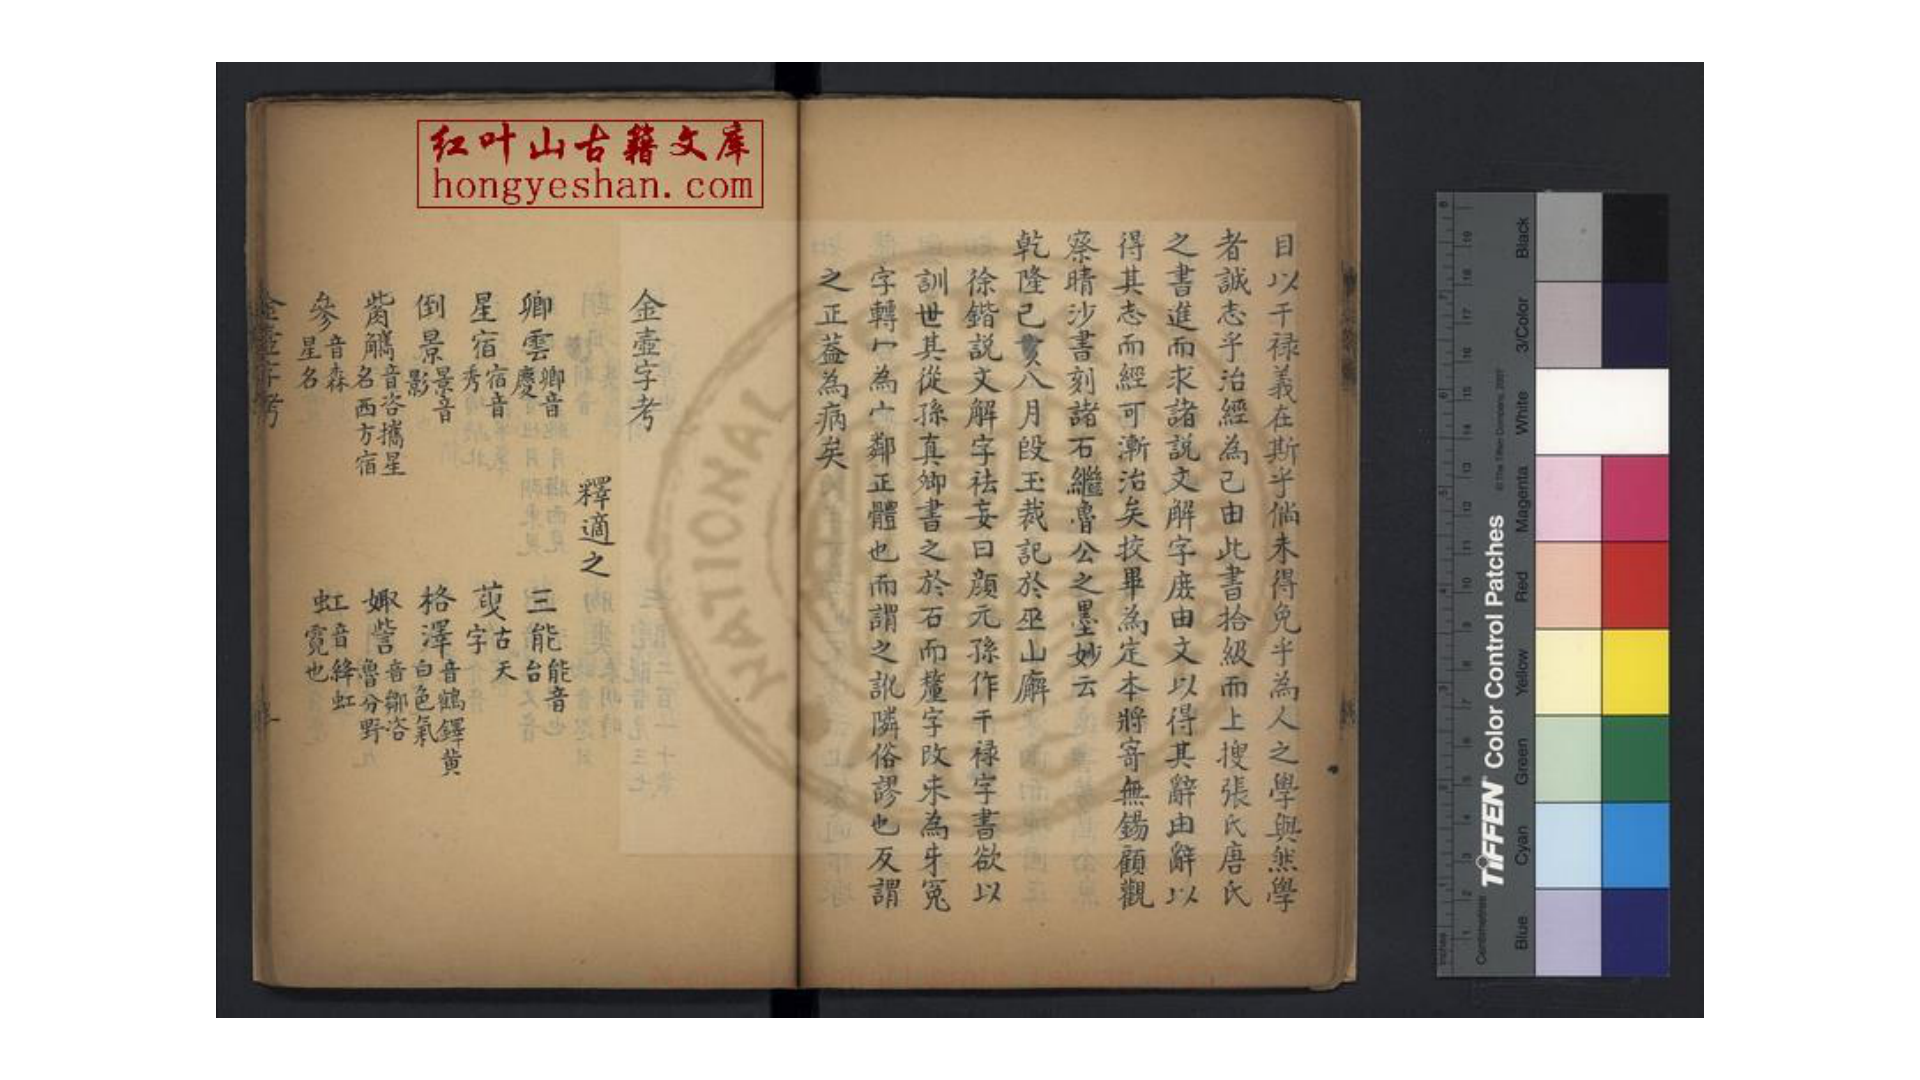 红叶山古籍文库
hongyeshan.com
目以干禄義在斯乎倘未得免乎為人之學與然學
者誠志乎治經為己由此書拾級而上搜張氏唐氏
之書進而求諸説文解字庻由文以得其辭由辭以
得其志而經可漸治矣挍畢為定本將寄無錫顧觀
察晴沙書刻諸石繼魯公之墨妙云
乾隆己亥八月段玉裁記於巫山廨
徐鍇説文解字袪妄曰顔元孫作干禄字書欲以
訓世其從孫真卿書之於石而釐字改未為牙冤
字轉冖為宀鄰正體也而謂之訛隣俗謬也反謂
之正葢為病矣
金壺字考
釋適之
卿雲 卿音慶
三能 能音台
星宿 宿音秀
古天字
倒景 景音影
格澤 音鶴鐸黄白色氣
觜觿 音咨攜星名西方宿
娵訾 音鄒咨魯分野
參 音森星名
虹 音絳虹霓也
金壺字考
NATIONAL
TIFFEN Color Control Patches
© The Tiffen Company, 2007
Centimetres
Inches
Blue
Cyan
Green
Yellow
Red
Magenta
White
3/Color
Black